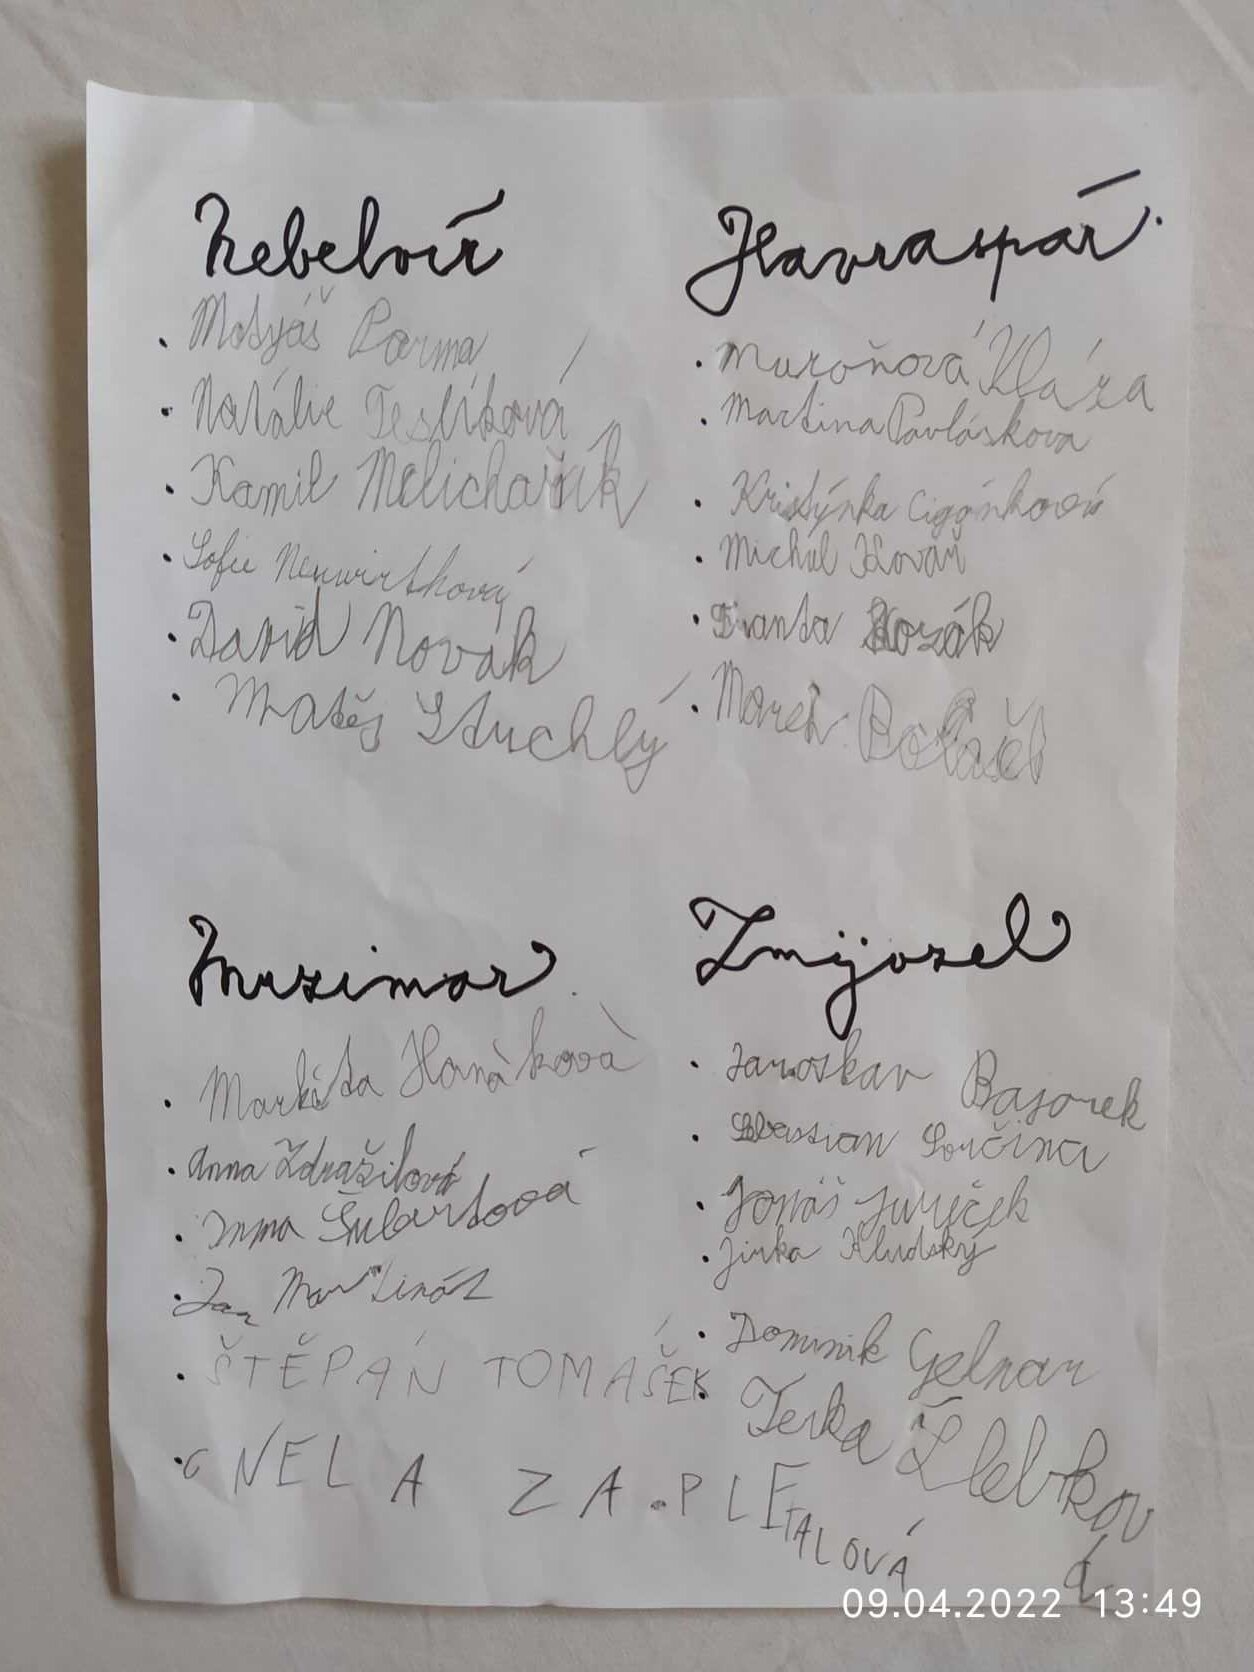 Nebelvír
Matyáš Parma
Natálie Teslíková
Kamil Melichařík
Sofie Neuwirthová
David Novák
Matěj Stuchlý
Havraspár
Muroňová Klára
Martina Pavlásková
Kristýnka Cigánková
Michal Kovář
Franta Kozák
Marek
Mrzimor
Markéta Hanáková
Anna Zdražilová
Šubartová
Jan Martinát
ŠTĚPÁN TOMÁŠEK
NELA ZAPLETALOVÁ
Zmijozel
Jaroslav Bajorek
Sebastian Sorčina
Jonáš Juříček
Jirka Kludský
Dominik Gelnar
Terka Žlebková
09.04.2022 13:49